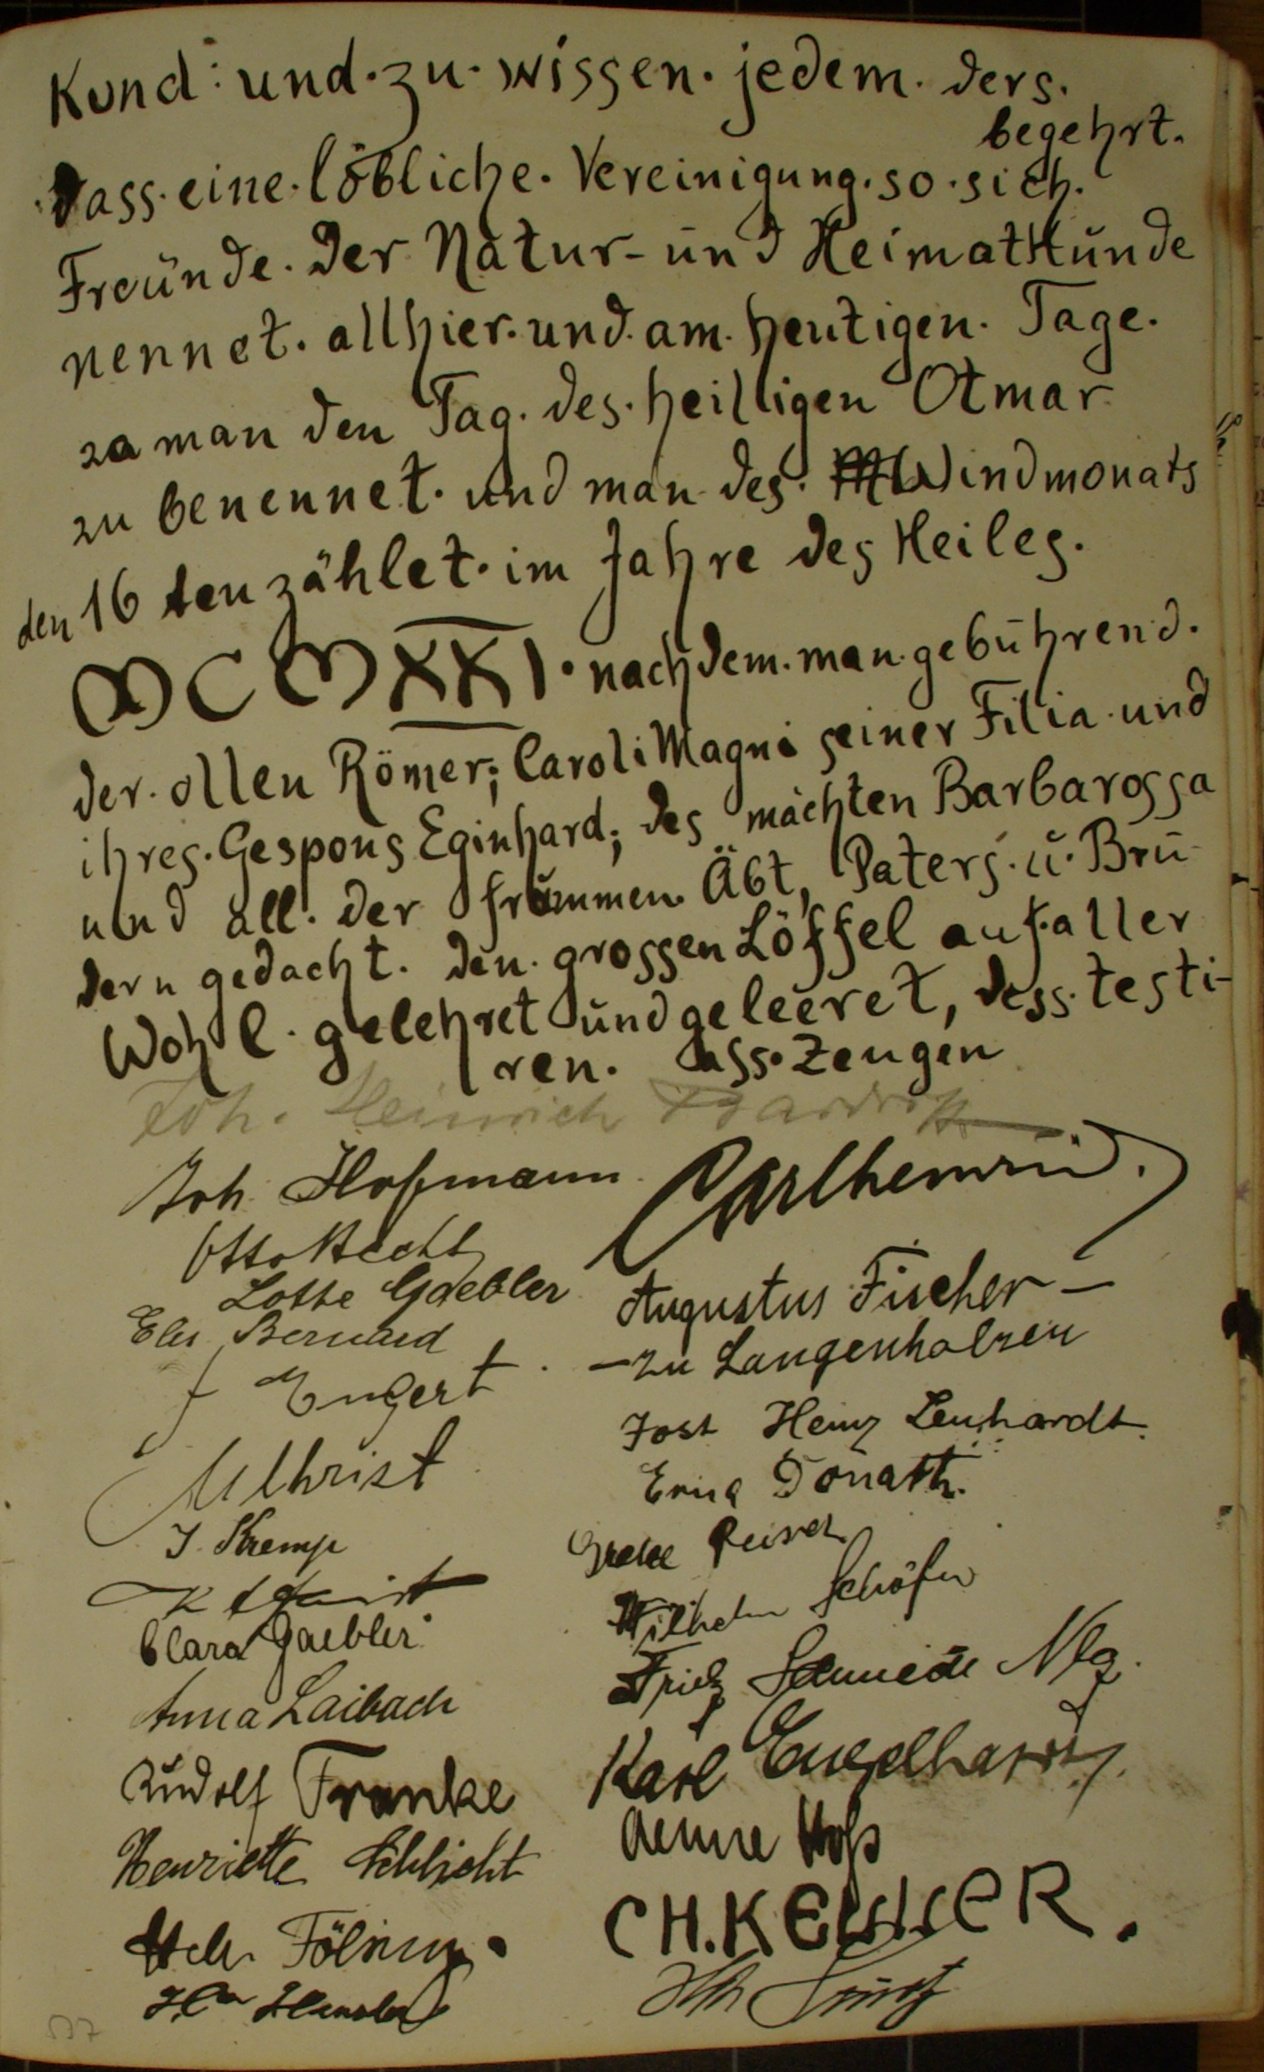 Kund: und. zu. wissen. jedem. ders.
begehrt.
dass. eine. löbliche. Vereinigung. so. sich.
Freunde. der Natur- und Heimatkunde
nennet. allhier. und. am. heutigen. Tage.
za man den Tag. des. heilligen Otmar
zu benennet. und man des. Windmonats
den 16 ten zählet. im Jahre des Heiles.
MCMXXI. nachdem. man. gebührend.
der. ollen Römer; Caroli Magni seiner Filia. und
ihres. Gespons Eginhard; des mächten Barbarossa
und all. der frummen Äbt, Paters. u. Brü-
dern gedacht. den. grossen Löffel auf. aller
Wohl. gelehret und geleeret, dess. testi-
ren. ass. Zeugen
Joh. Heinrich
Joh. Hofmann.
Otto Hecht
Lotte Gaebler
Augustus Fischer-
Bernard
-zu Langenholzen
Engert
Jost Heinz Lenhardt.
Erna Donath.
J. Kremp
Grete
Wilhelm Schöfer
Clara Gaebler
Fritz
Anna Laibach
Karl Engelhardt.
Rudolf Franke
Aenne Hoß
Henriette Schlicht
CH. KELLER.